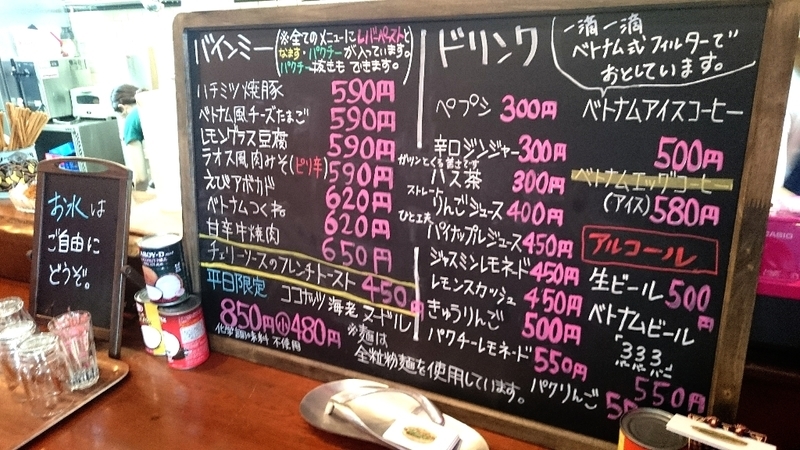 バインミー
(※全てのメニューにレバーペーストと
なます・パクチーが入っています。
パクチー抜きもできます。)
ハチミツ焼豚 590円
ベトナム風チーズたまご 590円
レモングラス豆腐 590円
ラオス風肉みそ(ピリ辛) 590円
えびアボカド 620円
ベトナムつくね 620円
甘辛牛焼肉 650円
チェリーソースのフレンチトースト 450円
平日限定 ココナッツ海老ヌードル
850円 小480円
化学調味料不使用
※麺は
全粒粉麺を使用しています。
ドリンク
ペプシ 300円
辛口ジンジャー 300円
ガツンとくる辛さです
ハス茶 300円
ストレート
りんごジュース 400円
ひと工夫
パイナップルジュース 450円
ジャスミンレモネード 450円
レモンスカッシュ 450円
きゅうりんご 500円
パクチーレモネード 550円
パクりんご
一滴一滴
ベトナム式フィルターで
おとしています。
ベトナムアイスコーヒー
500円
ベトナムエッグコーヒー
(アイス) 580円
アルコール
生ビール 500円
ベトナムビール
「333」
バーバーバー
550円
お水は
ご自由に
どうぞ。
CASIO